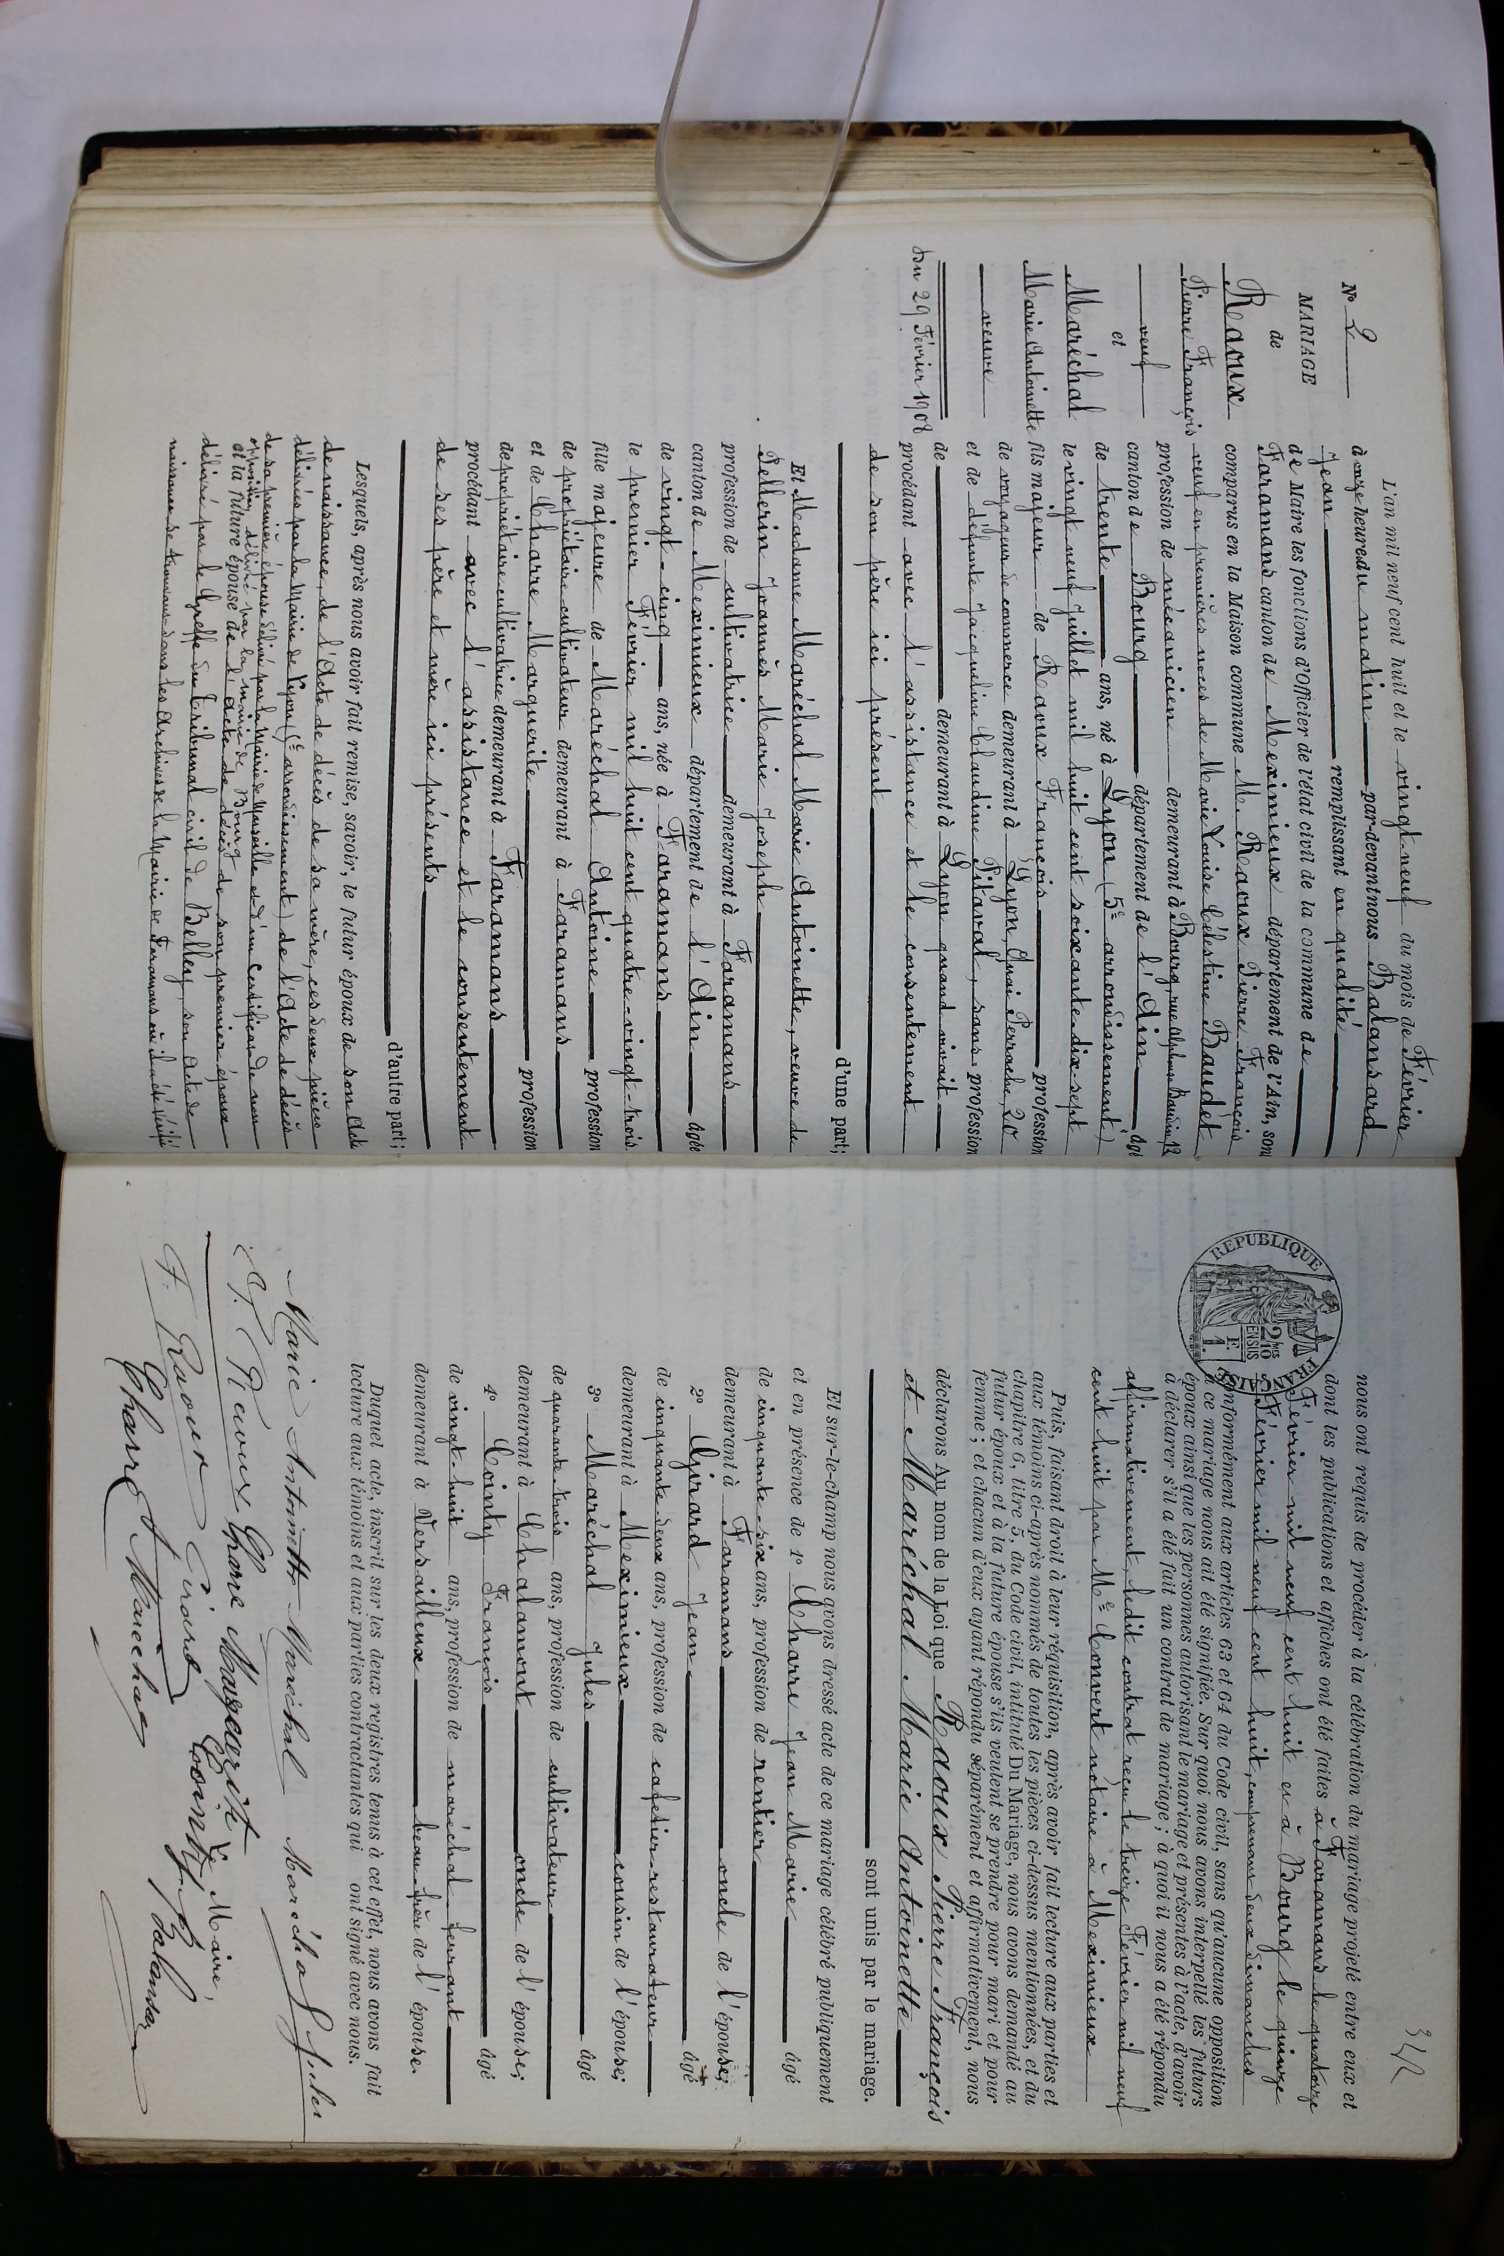 N° 2
MARIAGE
de
Raoux
Pierre François
veuf
et
Maréchal
Marie Antoinette
veuve
Du 29 Février 1908
L'an mil neuf cent huit et le vingt neuf du mois de Février
à onze heures du matin par-devant nous Balansard
Jean remplissant en qualité
de Maire les fonctions d'officier de l'état civil de la commune de
Faramans canton de Meximieux département de l'Ain, sont
comparus en la Maison commune M. Raoux Pierre François
veuf en premières noces de Marie Louise Célestine Baudet
profession de mécanicien demeurant à Bourg, rue Alphonse Baudin 12
canton de Bourg département de l'Ain âgé
de trente ans, né à Lyon (5e arrondissement)
le vingt neuf Juillet mil huit cent soixante-dix-sept
fils majeur de Raoux François profession
de voyageur de commerce demeurant à Lyon, Quai Perrache, 20
et de défunte Jacqueline Claudine Pitaval, sans profession
de demeurant à Lyon quand vivait
procédant avec l'assistance et le consentement
de son père ici présent
d'une part;
Et Madame Maréchal Marie Antoinette, veuve de
Pellerin Joannès Marie Joseph
profession de cultivatrice demeurant à Faramans
canton de Meximieux département de l'Ain âgée
de vingt-cinq ans, née à Faramans
le premier Février mil huit cent quatre-vingt-trois
fille majeure de Maréchal Antoine profession
de propriétaire cultivateur demeurant à Faramans
et de Charre Marguerite profession
de propriétaire cultivatrice demeurant à Faramans
procédant avec l'assistance et le consentement
de ses père et mère ici présents
d'autre part;
Lesquels, après nous avoir fait remise, savoir, le futur époux de son Acte
de naissance, de l'Acte de décès de sa mère, ces deux pièces
délivrées par la Mairie de Lyon (5e arrondissement) de l'Acte de décès
de sa première épouse délivré par la Mairie de Marseille et d'un Certificat de non
opposition délivré par la mairie de Bourg
et la future épouse de l'acte de décès de son premier époux
délivré par le Greffe du Tribunal civil de Belley, son Acte de
naissance se trouvant dans les Archives de la Mairie de Faramans où il a été vérifié
312
nous ont requis de procéder à la célébration du mariage projeté entre eux et
dont les publications et affiches ont été faites à Faramans le quatorze
Février mil neuf cent huit et à Bourg le quinze
Février mil neuf cent huit, comprenant deux dimanches
conformément aux articles 63 et 64 du Code civil, sans qu'aucune opposition
à ce mariage nous ait été signifiée. Sur quoi nous avons interpellé les futurs
époux ainsi que les personnes autorisant le mariage et présentes à l'acte, d'avoir
à déclarer s'il a été fait un contrat de mariage; à quoi il nous a été répondu
affirmativement, ledit contrat reçu le treize Février mil neuf
cent huit par Me Convert notaire à Meximieux
Puis, faisant droit à leur réquisition, après avoir fait lecture aux parties et
aux témoins ci-après nommés de toutes les pièces ci-dessus mentionnées, et du
chapitre 6, titre 5, du Code civil, intitulé Du Mariage, nous avons demandé au
futur époux et à la future épouse s'ils veulent se prendre pour mari et pour
femme; et chacun d'eux ayant répondu séparément et affirmativement, nous
déclarons Au nom de la Loi que Raoux Pierre François
et Maréchal Marie Antoinette
sont unis par le mariage.
Et sur-le-champ nous avons dressé acte de ce mariage célébré publiquement
et en présence de 1° Charre Jean Marie âgé
de cinquante-six ans, profession de rentier
demeurant à Faramans oncle de l'épouse;
2° Girard Jean âgé
de cinquante deux ans, profession de cafetier-restaurateur
demeurant à Meximieux cousin de l'épouse;
3° Maréchal Jules âgé
de quarante trois ans, profession de cultivateur
demeurant à Chalamont oncle de l'épouse;
4° Cointy François âgé
de vingt-huit ans, profession de maréchal-ferrant
demeurant à Versailleux beau-frère de l'épouse.
Duquel acte, inscrit sur les deux registres tenus à cet effet, nous avons fait
lecture aux témoins et aux parties contractantes qui ont signé avec nous.
Marie Antoinette Maréchal Maréchal Jules
P. Raoux Charre Marguerite Le Maire,
F. Raoux Girard Cointy J. Balansard
Charre Maréchal
REPUBLIQUE FRANÇAISE